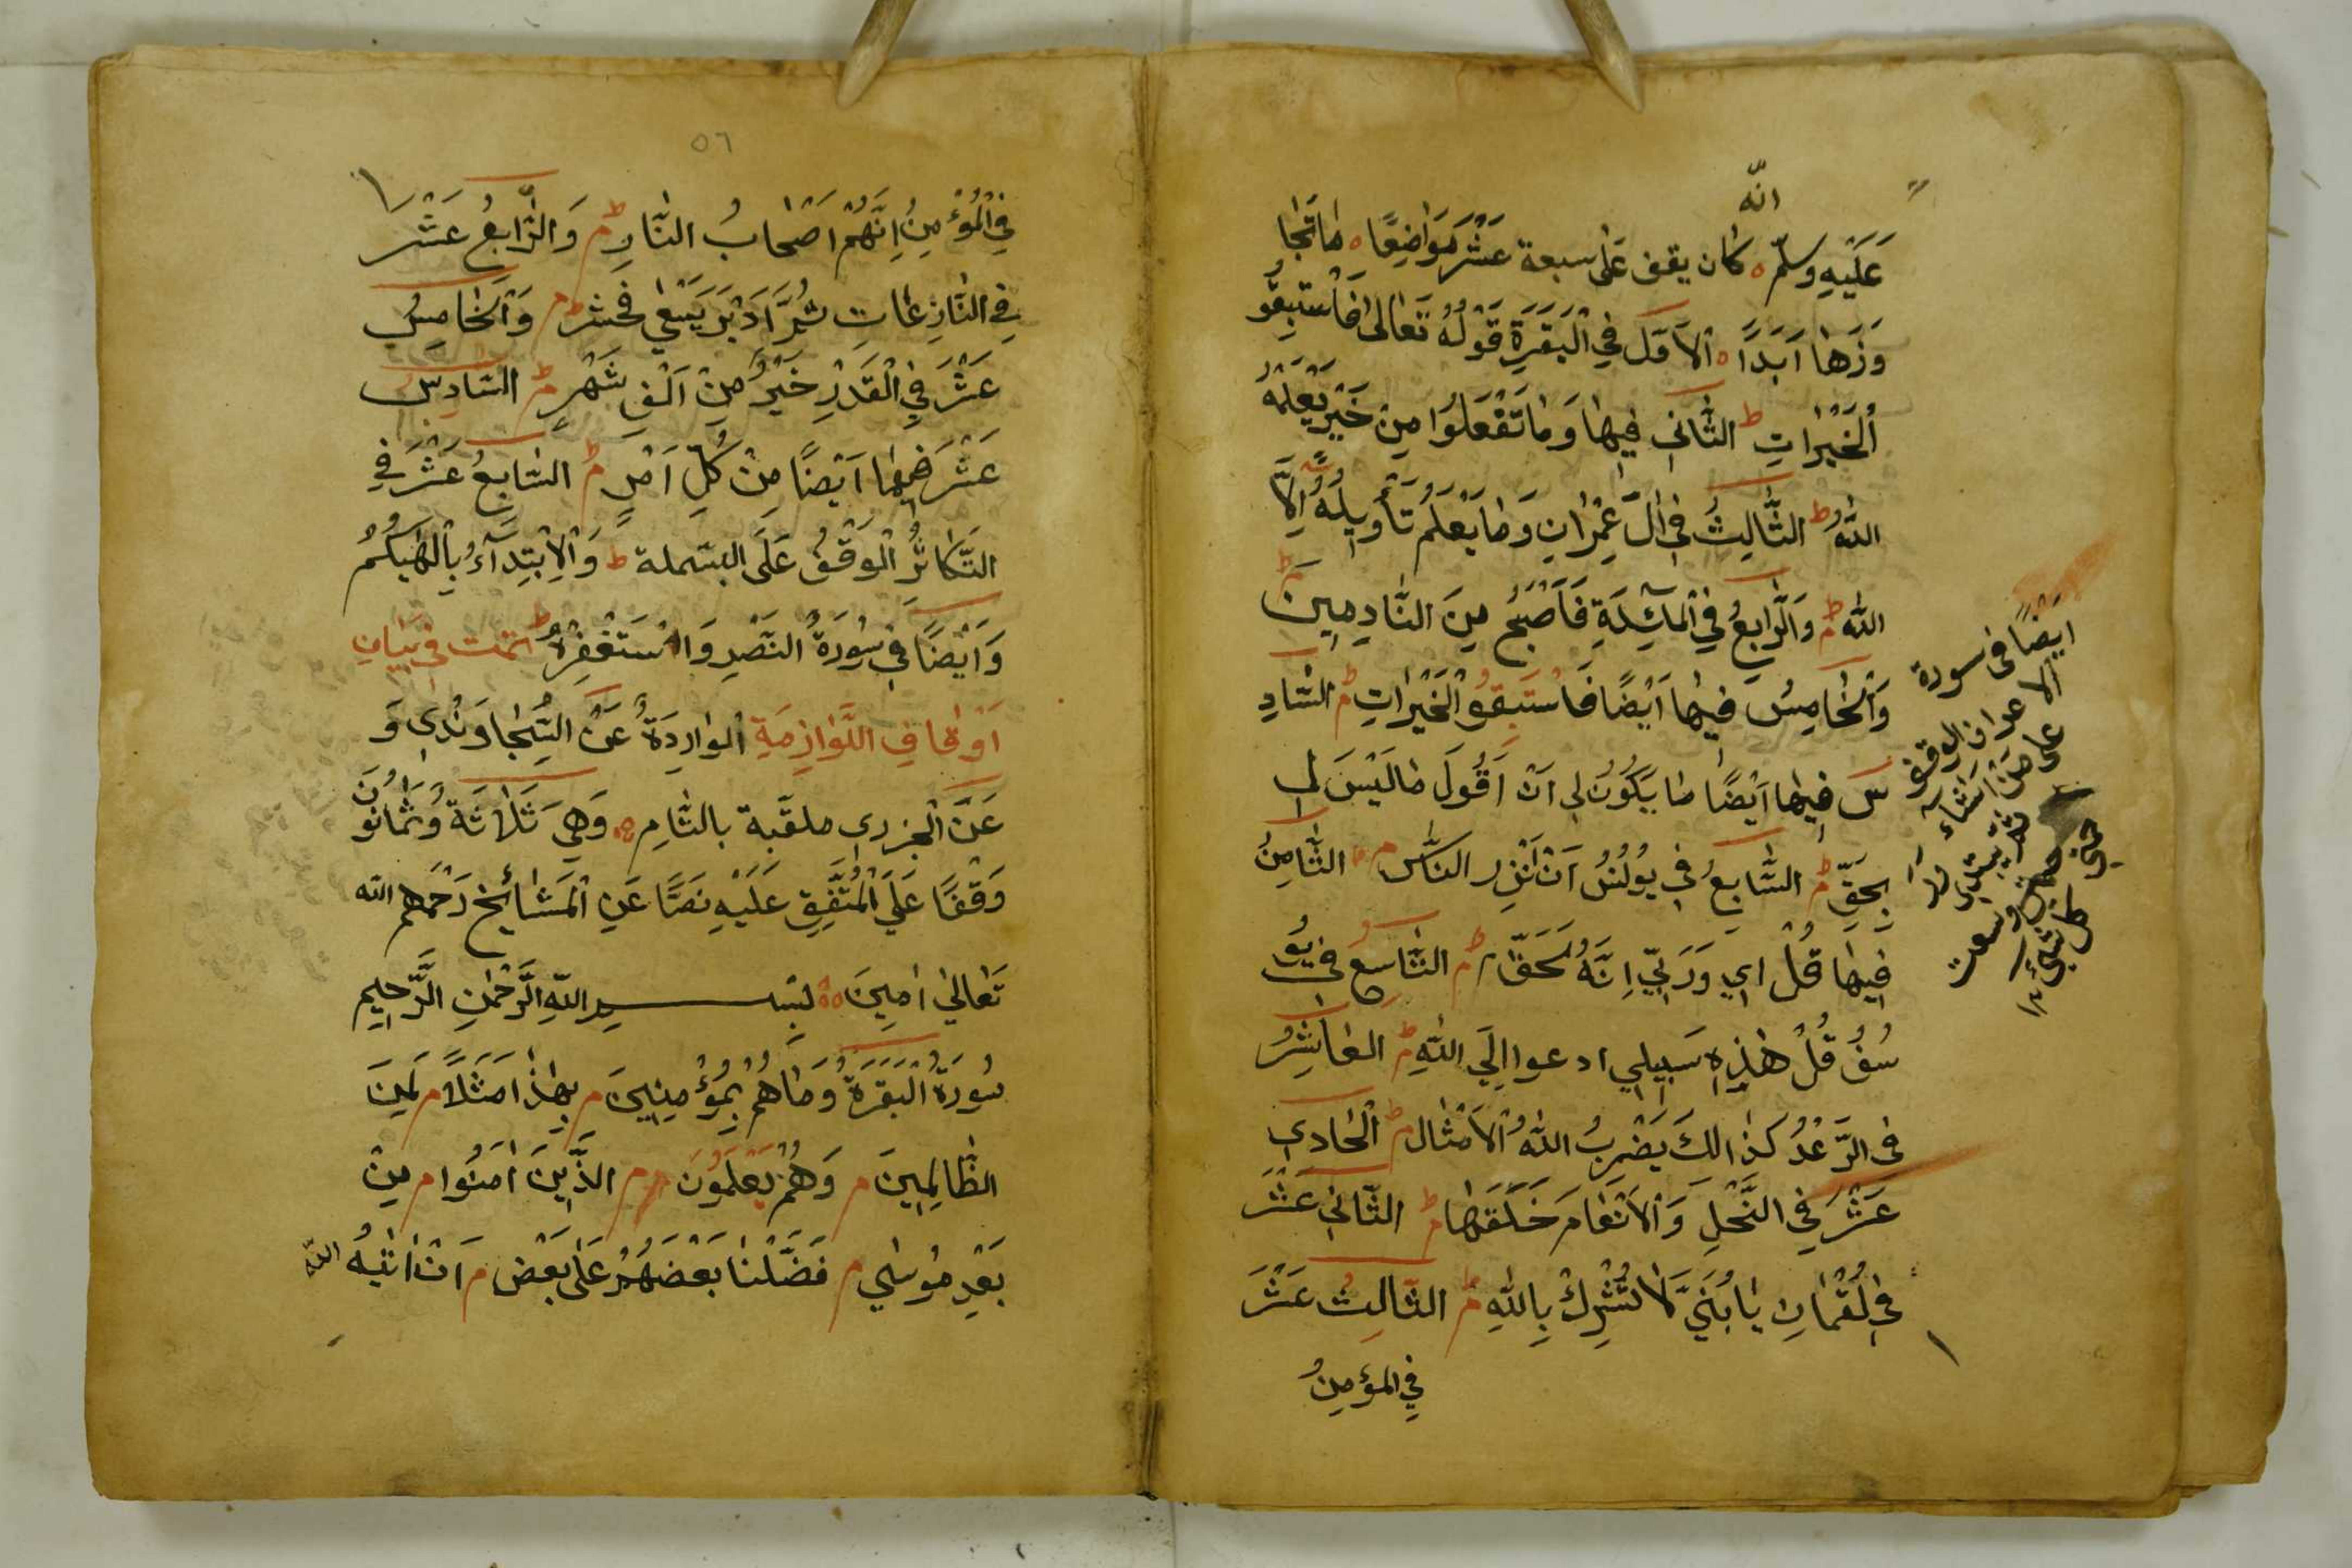 انّه
عَلَيْهِ وسلّم كان يقف عَلى سبعة عَشَرَ مَوَاضِعًا مَاتَجَا
وَزَهَا اَبَدًا اَلْاَوَّل فِي الْبَقَرَةِ قَوْلُهُ تَعَالىٰ فَاسْتَبِقُو
اْلخَيْرَاتِ ط الثَّانِي فِيهَا وَمَا تَفْعَلُوا مِنْ خَيْرٍ يَعْلَمْهُ
اللّٰهُ ط الثَّالِثُ فِي اٰلِ عِمْرَانِ وَمَا يَعْلَمُ تَأْوِيلَهُ اِلَّا
اللّٰه م وَالرَّابِعُ فِي الْمَآئِدَةِ فَاَصْبَحَ مِنَ النَّادِمِينَ
وَالْخَامِسُ فِيهَا اَيْضًا فَاسْتَبِقُوْا الْخَيْرَاتِ م السَّادِ
س فِيهَا اَيْضًا مَا يَكُونُ لِي اَنْ اَقُولَ مَا لَيْسَ لِي
بِحَقٍّ م السَّابِعُ فِي يُونُسُ اَنْ اَنْذِرِ النَّاس م الثَّامِنُ
فِيهَا قُلْ اِي وَرَبِّي اِنَّهُ لَحَقّ م التَّاسِعُ فِي يُو
سُفُ قُلْ هٰذِهِ سَبِيلِي ادعوا اِلَي اللّٰهِ م العَاشِرُ
فِي الرَّعْدُ كَذَالِكَ يَضْرِبُ اللّٰهُ الْاَمْثَال م اَلْحَادِي
عَشَرَ فِي النَّحْلِ وَالْاَنْعَامَ خَلَقَهَا م الثَّانِي عَشَرَ
فِي لُقْمَانِ يَا بُنَيَّ لَا تُشْرِكْ بِاللّٰهِ م الثَّالِث عَشَرَ
فِي المؤمِنُ
اَيضًا فى سورة
الاعراف الوقف
على
٥٦
فِي الْمُؤْمِنُ اِنَّهُمْ اَصْحَابُ النَّارِ م وَالرَّابِعُ عَشَر
فِي النَّازِعَاتِ ثُمَّ اَدْبَرَ يَسْعٰى فحشر م وَالْخَامِسُ
عَشَرَ فِي الْقَدْرِ خَيْرٌ مِنْ اَلْفِ شَهْرٍ م السَّادِسُ
عَشَرَ فِيهَا اَيْضًا مِنْ كُلِّ اَمْرٍ م السَّابِعُ عَشَرَ فِي
التَّكَاثُرُ الْوَقْفُ عَلَى البسملة ط وَالْاِبْتِدَآءُ بِاَلْهٰيكُمُ
وَاَيْضًا فِي سُورَةُ النَّصْرِ وَاسْتَغْفِرْهُ ط تمت فِي بَيَانِ
اَوْقَافِ اللَّوَازِمَةِ الْوَارِدَةُ عَنْ السَّجَاوَنْدِي وَ
عَنْ الجزري ملقّبة بالتَّامِ وَهِيَ ثَلَاثَةٌ وَثَمَانُونَ
وَقْفًا عَلَي الْمُتَّفِقِ عَلَيْهِ نَصًّا عَنِ الْمَشَائِخ رَحْمَهم اللّه
تَعَالىٰ اٰمِينَ بسم اللّهِ الرَّحْمٰنِ الرَّحِيمِ
سُورَةُ الْبَقَرَةُ وَمَاهُمْ بِمُؤْمِنِينَ م بِهٰذَا مَثَلًا م لَمِنَ
الظَّالِمِينَ م وَهُمْ يَعْلَمُونَ م الَّذِينَ اٰمَنُوا م مِنْ
بَعْدِ مُوسٰي م فَضَّلْنَا بَعْضَهُمْ عَلٰى بَعْضٍ م اَنْ اٰتٰيهُ اللّٰه